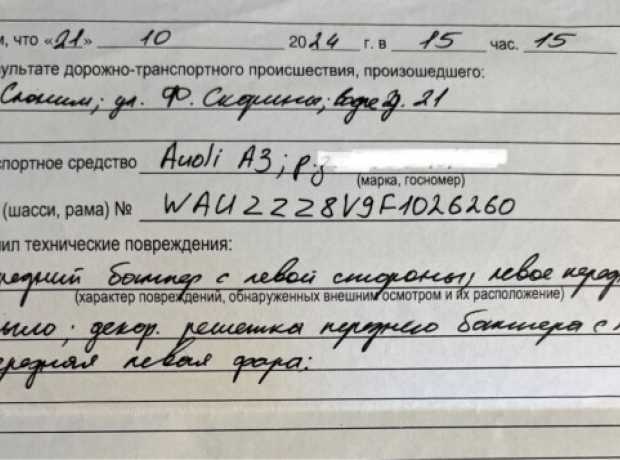 м, что «21» 10 2024 г. в 15 час. 15
ультате дорожно-транспортного происшествия, произошедшего:
Слоним; ул. Ф. Скорины; возле д. 21
спортное средство Audi A3; р.з
(марка, госномер)
(шасси, рама) № WAUZZZ8V9F1026260
ил технические повреждения:
редний бампер с левой стороны, левое перед
(характер повреждений, обнаруженных внешним осмотром и их расположение)
ыло; декор. решетка переднего бампера с
ередняя левая фара: